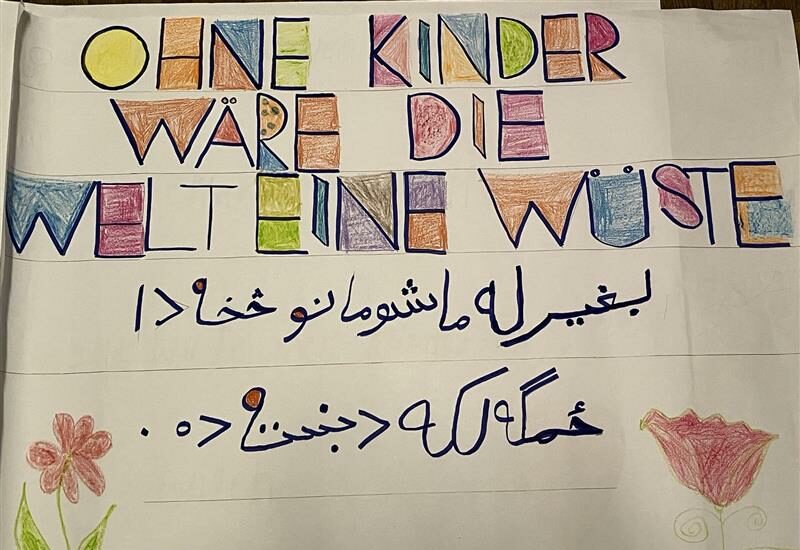 OHNE KINDER
WÄRE DIE
WELT EINE WÜSTE
بغیر له ماشومانو څخه دا
ځمګه لکه دښته ده .